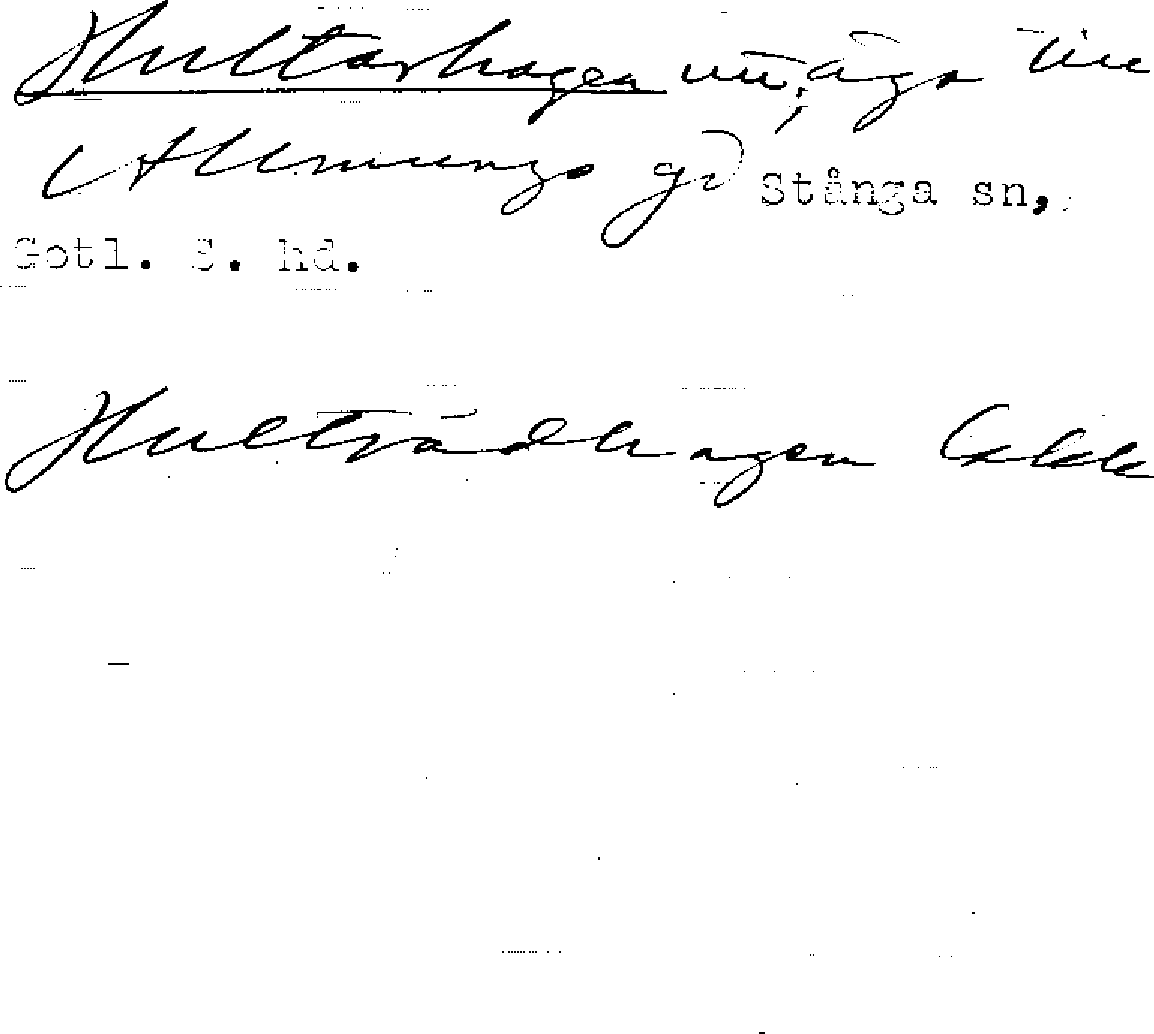 Hultarhagen un, äga till
Allmungs gd Stånga sn,
Gotl. S. hd.
Hulträdhagen